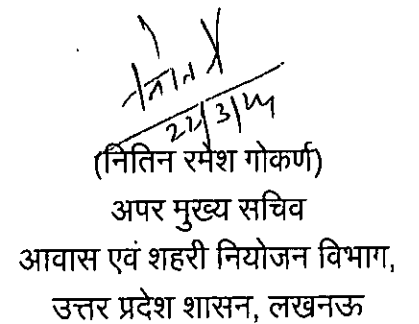 22/3/24
(नितिन रमेश गोकर्ण)
अपर मुख्य सचिव
आवास एवं शहरी नियोजन विभाग,
उत्तर प्रदेश शासन, लखनऊ